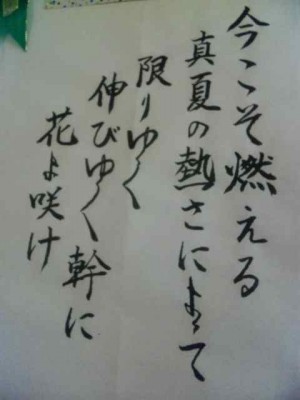 今こそ燃える
真夏の熱さによって
限りゆく
伸びゆく幹に
花よ咲け